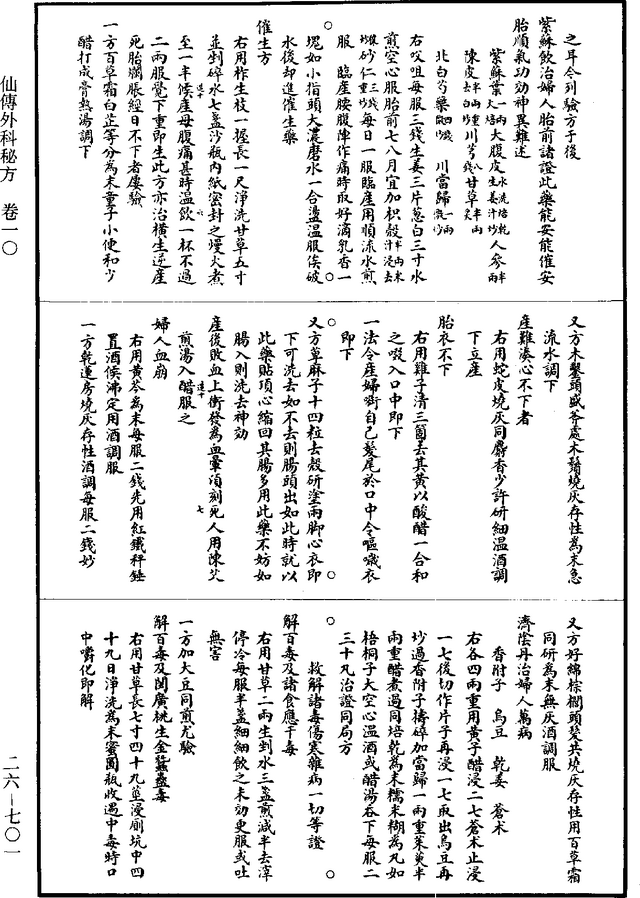 之耳今列驗方于後
紫蘇飲治婦人胎前諸證此藥能安能催安
胎順氣功効神異難述
紫蘇葉一兩大焙 大腹皮水洗焙乾生姜汁炒 人參半兩
陳皮半兩去白 川芎八錢重炒 甘草半兩炙
北白芍藥 川當歸
右㕮咀每服三錢生姜三片葱白三寸水
煎空心服胎前七八月宜加枳殼半兩水浸去
穰炒砂仁三錢重炒每日一服臨產用順流水煎
服 臨產腰腹陣作痛時取好滴乳香一
塊如小指頭大濃磨水一合盪溫服俟破
水後却進催生藥
催生方
右用柞生枝一握長一尺淨洗甘草五寸
並剉碎水七盞沙瓶內紙密封之熳火煮
至一半候產母腹痛甚時溫飲一杯不過
二兩服覺下重即生此方亦治橫生逆產
死胎爛脹經日不下者屢驗
一方百草霜白芷等分為末童子小便和少
醋打成膏熱湯調下
又方未鑿頭盛斧處木鬚燒灰存性為末急
流水調下
產難湊心不下者
右用蛇皮燒灰同麝香少許研細溫酒調
下立產
胎衣不下
右用雞子清三箇丟其黃以酸醋一合和
之啜入口中即下
一法令產婦啣自己髮尾於口中令嘔噦衣
即下
又方草麻子十四粒去殼研塗兩脚心衣即
下可洗去如不去則腸頭出如此時就以
此藥貼項心縮回其腸多用此藥不妨如
腸入則洗去神効
產後敗血上衝發為血暈須刻死人用陳艾
煎湯入醋服之
婦人血崩
右用黃芩為末每服二錢先用紅鐵秤錘
置酒候沸定用酒調服
一方乾蓮房燒灰存性酒調每服二錢妙
又方好綿棕櫚頭髮共燒灰存性用百草霜
同研為末無灰酒調服
濟陰丹治婦人萬病
香附子 烏豆 乾姜 蒼朮
右各四兩重用黃子醋浸二七蒼朮止浸
一七後切作片子再浸一七取出烏豆再
炒過香附子擣碎加當歸一兩重茱萸半
兩重醋煮過同焙乾為末糯末糊為丸如
梧桐子大空心溫酒或醋湯吞下每服二
三十丸治證同局方
救解諸毒傷寒雜病一切等證
解百毒及諸食應干毒
右用甘草二兩生剉水三盞煎減半去滓
停冷每服半盞細細飲之未効更服或吐
無害
一方加大豆同煎尤驗
解百毒及閩廣桃生金蠶蠱毒
右用甘草長七寸四十九莖浸廁坑中四
十九日淨洗為末蜜圓瓶收遇中毒時口
中嚼化即解
仙傳外科秘方 卷一〇
二六—七〇一